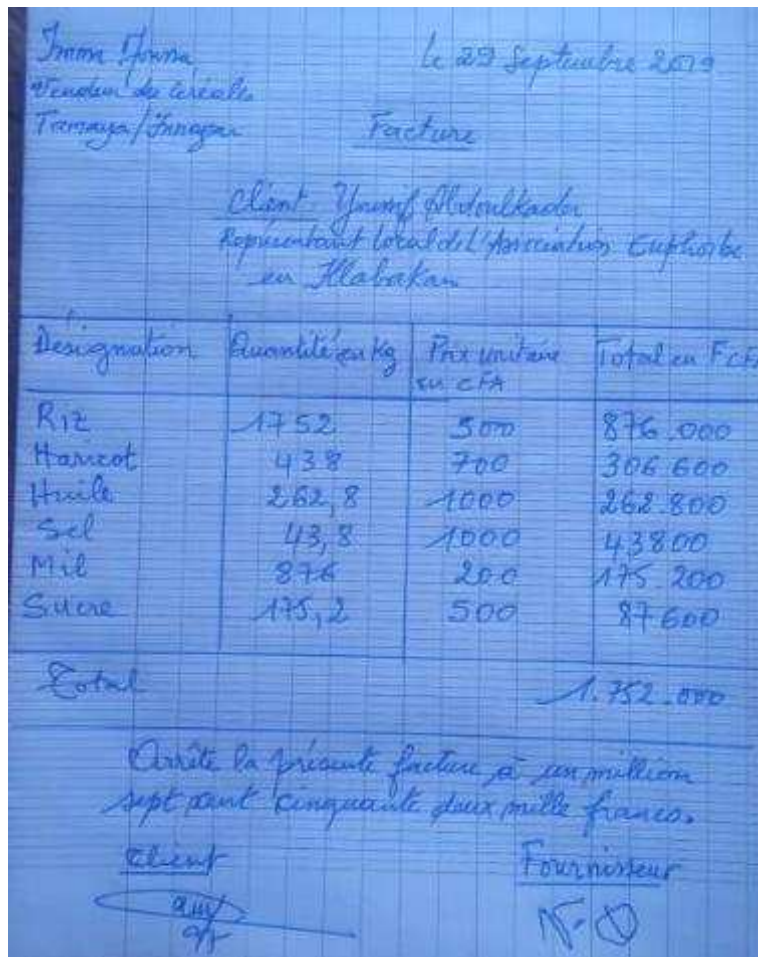 Le 29 Septembre 2019
Vendeur de Céréales
Facture
Client Abdoulkader
Représentant local de l'Association Euphorbe
en
Désignation Quantité en Kg Prix unitaire en CFA Total en FCFA
Riz 1752 500 876.000
Haricot 438 700 306 600
Huile 262,8 1000 262.800
Sel 43,8 1000 43800
Mil 876 200 175.200
Sucre 175,2 500 87600
Total 1.752.000
Arrête la présente facture à un million
sept cent cinquante deux mille francs.
Client Fournisseur